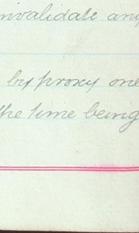 invalidate any
by proxy one
the time being